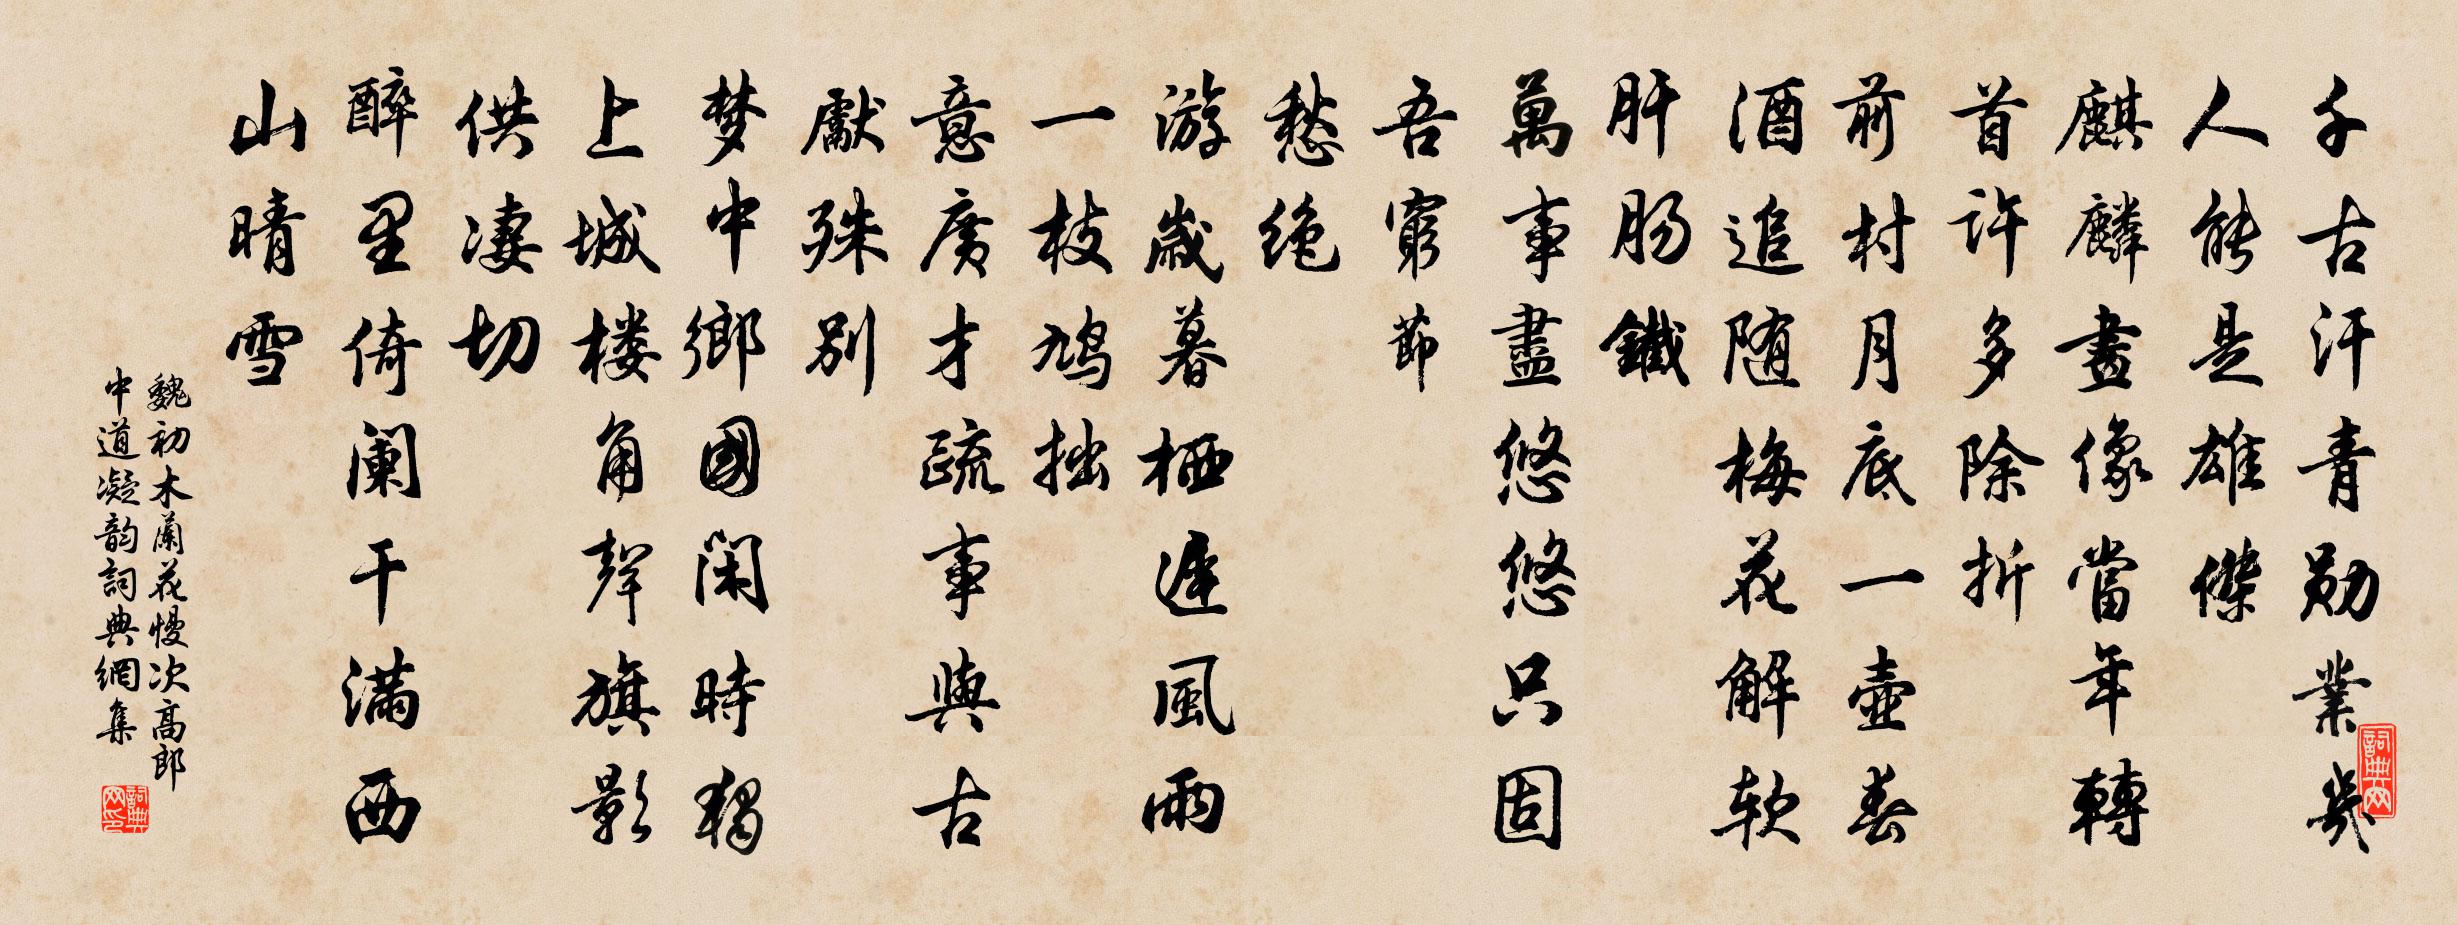 千古汗青勋業幾
人能是雄傑
麒麟畫像當年轉
首許多除折
前村月底一壺春
酒追随梅花解软
肝肠鐵
萬事盡悠悠只固
吾窮節
愁绝
游歲暮栖遲風雨
一枝鸠拙
意廣才疏事與古
獻殊别
梦中鄉國闲時猶
上城楼角聲旗影
供凄切
醉里倚阑干满西
山晴雪
魏初木蘭花慢次高郎
中道凝韵詞典網集
詞典网
詞典网印